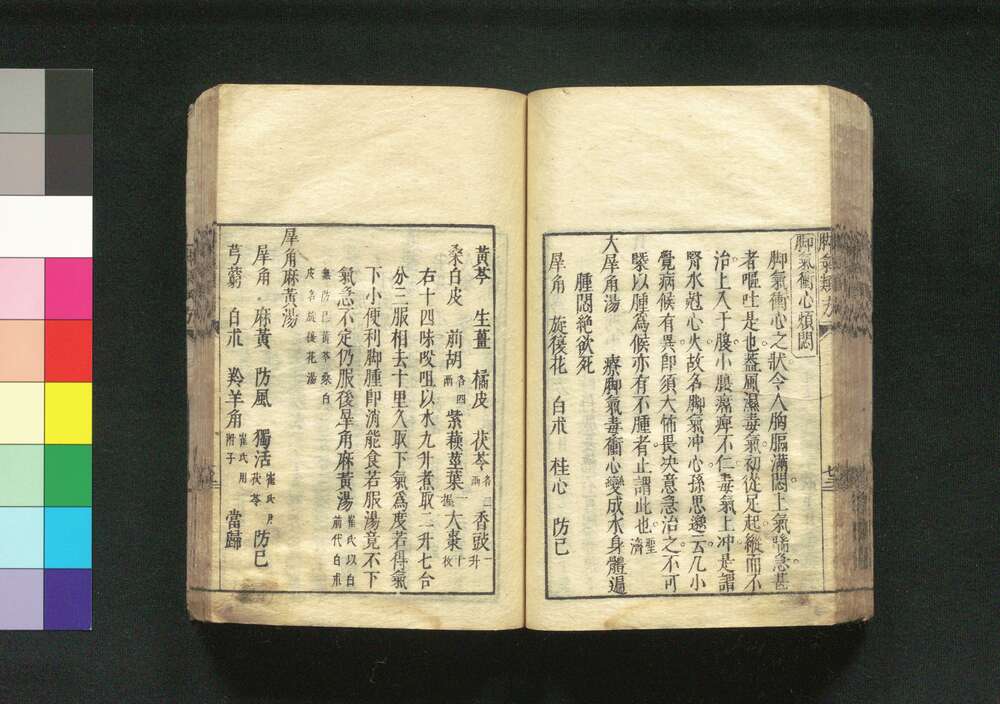 脚氣衝心煩悶
脚氣衝心之狀令人胸膈滿悶上氣喘急甚
者嘔吐是也蓋風濕毒氣初從足起縱而不
治上入于腹小腹㾏痺不仁毒氣上冲是謂
腎水尅心火故名脚氣冲心孫思邈云凡小
覺病候有異即須大怖畏决意急治之不可
緊以腫為候亦有不腫者止謂此也聖濟
大犀角湯　療脚氣毒衝心變成水身體遍
腫悶絶欲死
犀角　旋復花　白朮　桂心　防已
黃芩　生薑　橘皮　茯苓各二兩　香豉一升
桑白皮　前胡各四兩　紫蘓莖葉一握　大棗十枚
右十四味㕮咀以水九升煮取二升七合
分三服相去十里久取下氣為度若得氣
下小便利脚腫即消能食若服湯竟不下
氣急不定仍服後犀角麻黃湯崔氏以白前代白朮
無防已黃芩桑白皮名旋復花湯
犀角麻黃湯
犀角　麻黃　防風　獨活崔氏用茯苓　防已
芎藭　白朮　羚羊角崔氏用附子　當歸